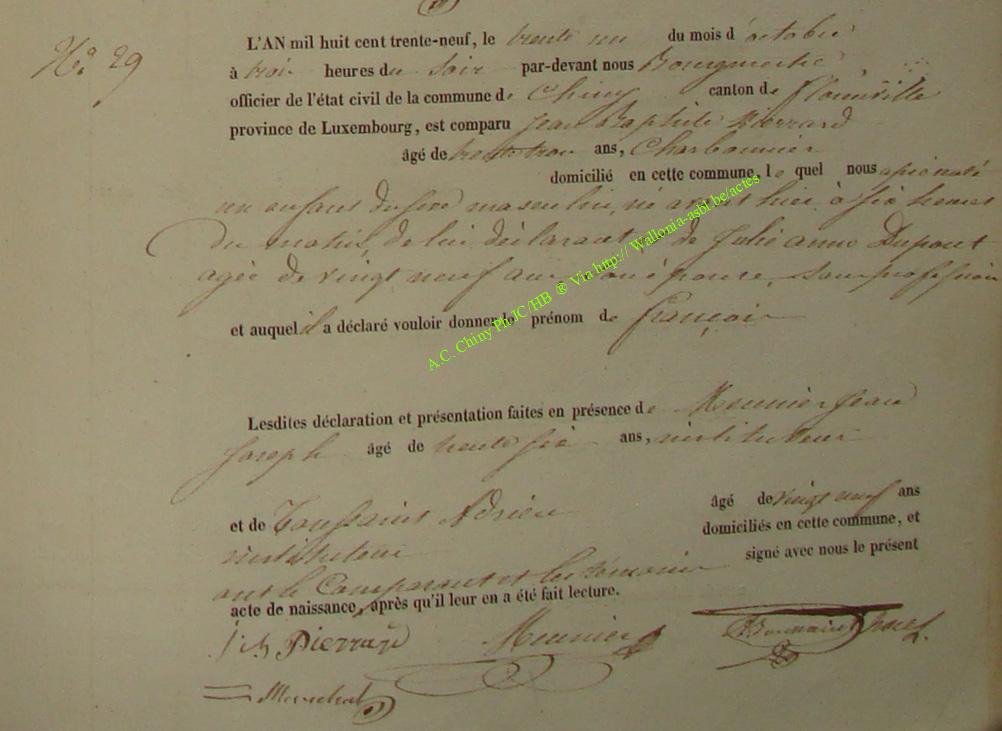 No 29
L'AN mil huit cent trente-neuf, le trente un du mois d'octobre
à trois heures du soir par-devant nous Bourgmestre
officier de l'état civil de la commune de Chiny canton de Florenville
province de Luxembourg, est comparu Jean Baptiste Pierrard
âgé de trente trois ans, Charbonnier
domicilié en cette commune, le quel nous a présenté
un enfant du sexe masculin, né avant hier à six heures
du matin, de lui déclarant, de Julie anne Dupont
agée de vingt neuf ans son épouse, sans profession
et auquel il a déclaré vouloir donner le prénom de françois
Lesdites déclaration et présentation faites en présence de Meunier Jean
Joseph âgé de trente six ans, instituteur
et de Toussaint Adrien âgé de vingt neuf ans
instituteur domiciliés en cette commune, et
ont le Comparant et les témoins signé avec nous le présent
acte de naissance, après qu'il leur en a été fait lecture.
Pierrard Meunier
Maréchal
A.C. Chiny Ph.JC/HB ® Via http:// Wallonia-asbl.be/actes